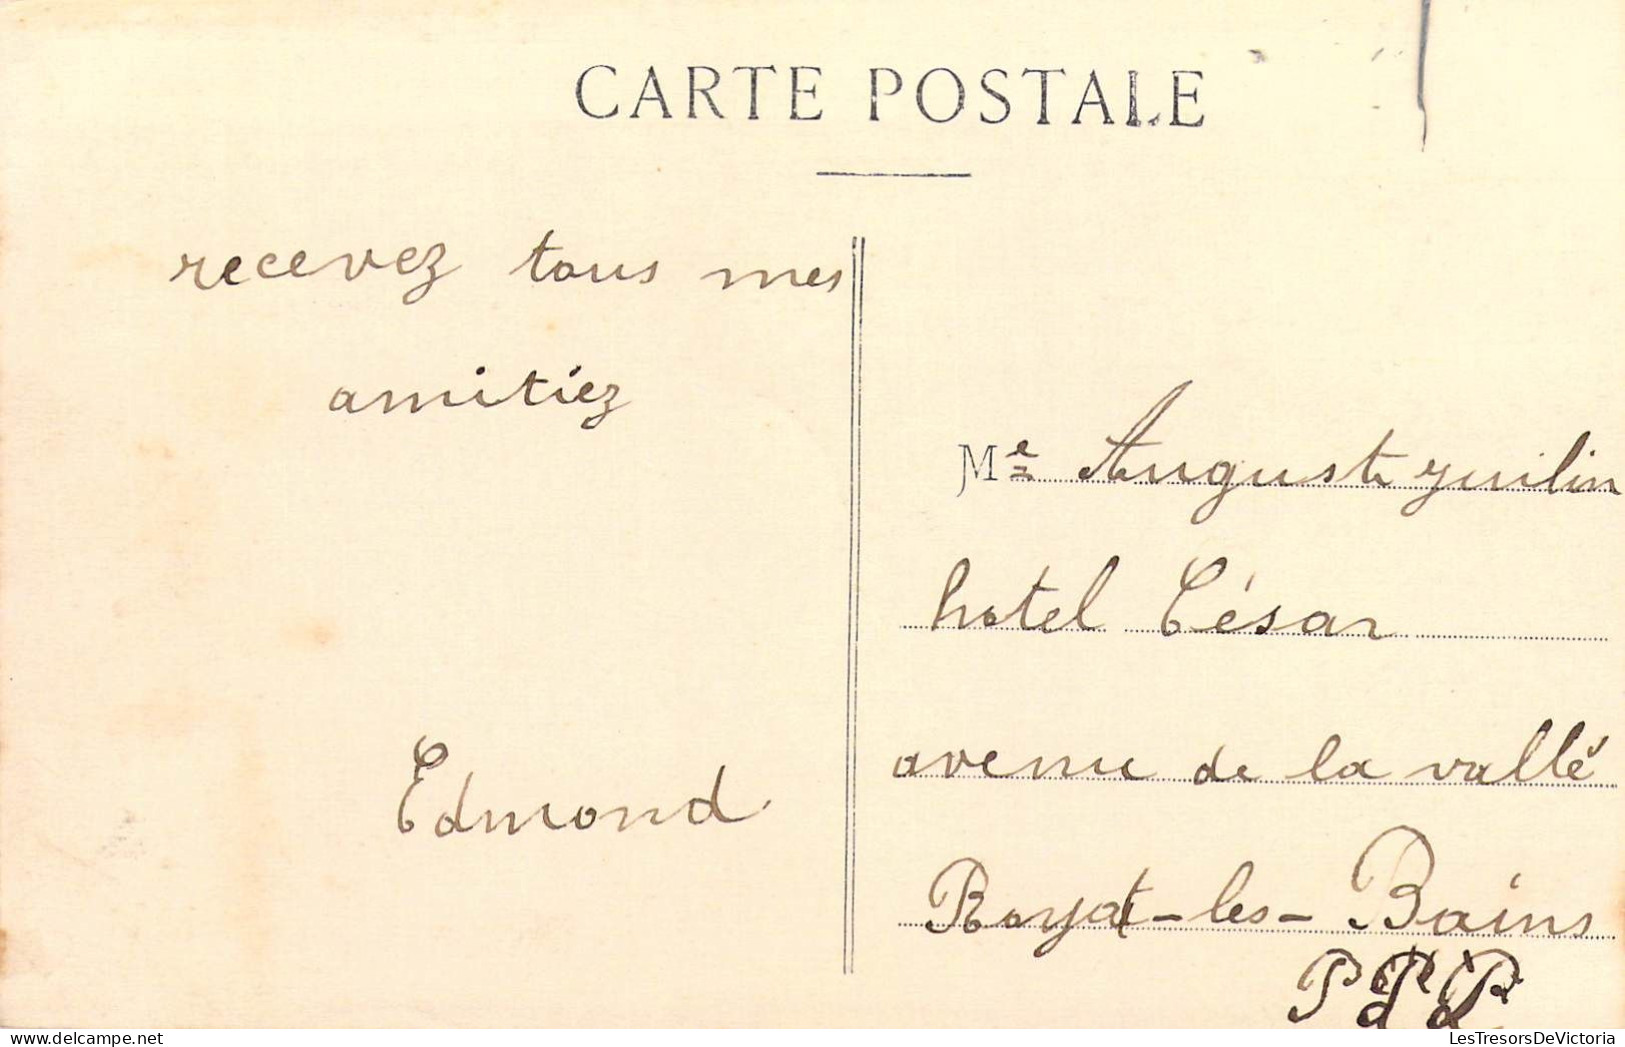 CARTE POSTALE
recevez tous mes
amitiez
Edmond
Me Auguste
hotel César
avenue de la vallé
Royat-les-Bains
LesTresorsDeVictoria